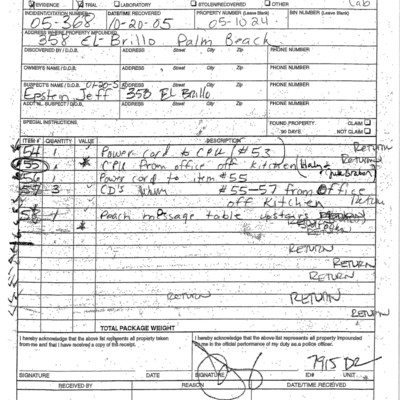 EVIDENCE TRIAL LABORATORY STOLEN/RECOVERED OTHER Lab
INCIDENT/CITATION NUMBER DATE/TIME RECOVERED PROPERTY NUMBER (Leave Blank) BIN NUMBER (Leave Blank)
05-368 10-20-05 05-1024
ADDRESS WHERE PROPERTY IMPOUNDED
358 EL-Brillo Palm Beach
DISCOVERED BY / D.O.B. ADDRESS Street City Zip PHONE NUMBER
OWNER'S NAME / D.O.B. ADDRESS Street City Zip PHONE NUMBER
SUSPECT'S NAME / D.O.B. ADDRESS Street City Zip PHONE NUMBER
Epstein Jeff 358 El Brillo
ADDT'NL SUSPECT / D.O.B. ADDRESS Street City Zip PHONE NUMBER
SPECIAL INSTRUCTIONS FOUND PROPERTY: CLAIM
90 DAYS NOT CLAIM
ITEM # QUANTITY VALUE DESCRIPTION
54 1 Power cord to CPU (#53) Return
55 1 CPU from office off kitchen Return
56 1 Power cord to item #55
57 3 CD's #55-57 from Office
off Kitchen Return
58 1 Peach message table upstairs
Return
RETURN
RETURN
RETURN
RETURN
RETURN RETURN
RETURN
TOTAL PACKAGE WEIGHT
I hereby acknowledge that the above list represents all property taken
from me and that I have received a copy of this receipt.
I hereby acknowledge that the above list represents all property impounded
by me in the official performance of my duty as a police officer.
7915 DB
SIGNATURE DATE SIGNATURE ID# UNIT
RECEIVED BY REASON DATE/TIME RECEIVED